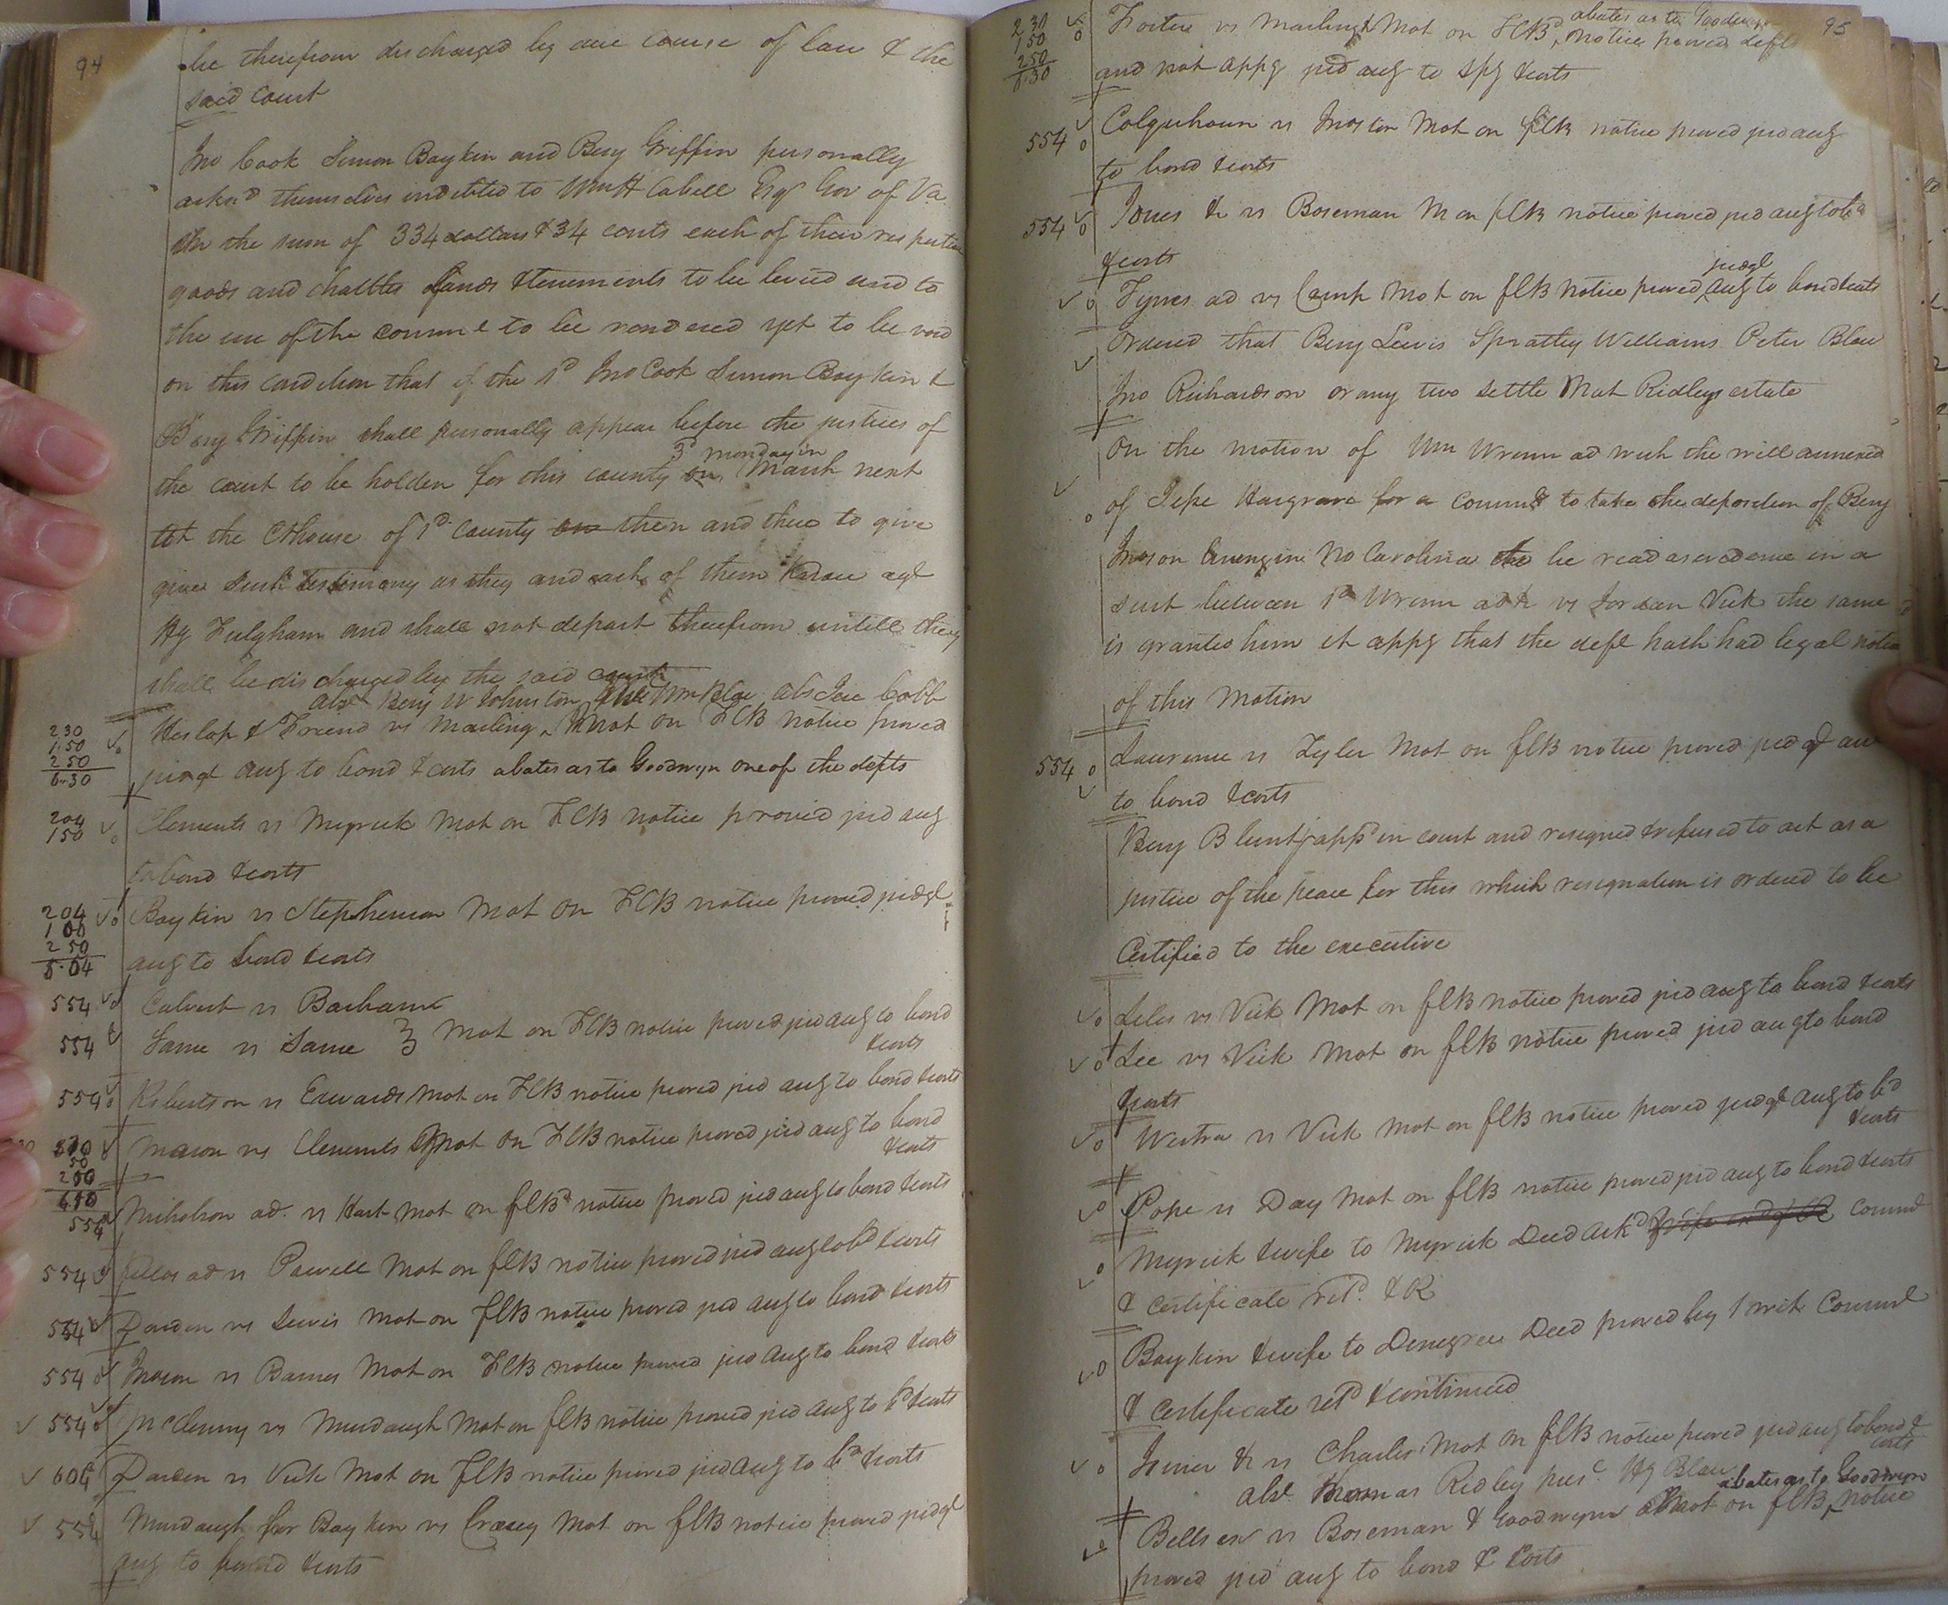 94
be therefrom discharged by due course of law & the
said court
Jno Cook Simon Boykin and Benj Griffin personally
ackn'd themselves indebted to Wm H Cabell Esqr Gov of Va
in the sum of 334 dollars & 34 cents each of their respective
goods and chattles lands & tenements to be levied and to
the use of the commw to be rendered yet to be void
on this condition that if the sd Jno Cook Simon Boykin &
Benj Griffin shall personally appear before the justices of
the court to be holden for this county on 3d monday in March next
at the Cthouse of sd County on then and there to give
give such testimony as they and each of them know agt
Hy Fulgham and shall not depart therefrom untill they
shall be discharged by the said court
abst Benj W Johnston Wm Blow abs Joe Cobb
230
1.50
250
6.30
Heslop & Friend vs Mailing Mot on FCB notice proved
judgt aug to bond & costs abates as to Goodwyn one of the defts
204
150
Clements vs Myrick Mot on FCB notice proved jud aug
to bond & costs
204
100
250
5.04
Boykin vs Stephenson Mot on FCB notice proved judgt
aug to bond & costs
554 Calvert vs Barham
554 Same vs Same } Mot on FCB notice proved jud aug to bond
& costs
554 Robertson vs Edwards Mot on FCB notice proved jud aug to bond & costs
50
250
Mason vs Clements Mot on FCB notice proved jud aug to bond
& costs
554 Nicholson ad. vs Hart mot on FCB notice proved jud aug to bond & costs
554 ad vs Powell Mot on FCB notice proved jud aug to bd & costs
554 Darden vs Lewis Mot on FCB notice proved jud aug to bond & costs
554 Mason vs Barnes Mot on FCB notice proved jud aug to bond & costs
554 McClenny vs Murdaugh Mot on FCB notice proved jud aug to bd & costs
604 Darden vs Vick Mot on FCB notice proved jud aug to bd & costs
554 Murdaugh for Boykin vs Crasey Mot on FCB notice proved judgt
aug to bond & costs
95
230
150
250
6.30
Foster vs Mailing & Mot on FCB abates as to Goodwyn notice proved deft
and not appg jud aug to spg & costs
554 Colquhoun vs Moston Mot on FCB notice proved jud aug
to bond & costs
554 Jones & vs Boseman M on FCB notice proved jud aug to bd
& costs
Tynes ad vs Camp Mot on FCB notice proved judgt aug to bond & costs
Ordered that Benj Lewis Spratley Williams Peter Blow
Jno Richardson or any two settle Mat Ridleys estate
On the motion of Wm Wrenn ad with the will annexed
of Jesse Hargrave for a comms to take the deposition of Benj
in No Carolina to be read as evidence in a
suit between sd Wrenn adr vs Jordan Vick the same
is granted him it appg that the deft hath had legal notice
of this Motion
554 Lawrence vs Tyler Mot on FCB notice proved judgt aug
to bond & costs
Benj Blunt appd in court and resigned & refused to act as a
justice of the peace for this which resignation is ordered to be
Certified to the executive
Liles vs Vick Mot on FCB notice proved jud aug to bond & costs
Lee vs Vick Mot on FCB notice proved jud aug to bond
& costs
Westra vs Vick Mot on FCB notice proved judgt aug to bd
& costs
Pope vs Day Mot on FCB notice proved jud aug to bond & costs
Myrick & wife to Myrick Deed ackd commn
& certificate retd & R
Boykin & wife to Denegree Deed proved by 1 wit Commn
& certificate retd & continued
& vs Charles Mot on FCB notice proved jud aug to bond &
costs
abst Thomas Ridley prest Hy Blow
Bells exr vs Boseman & Goodwyn Mot on FCB abates as to Goodwyn notice
proved jud aug to bond & Costs